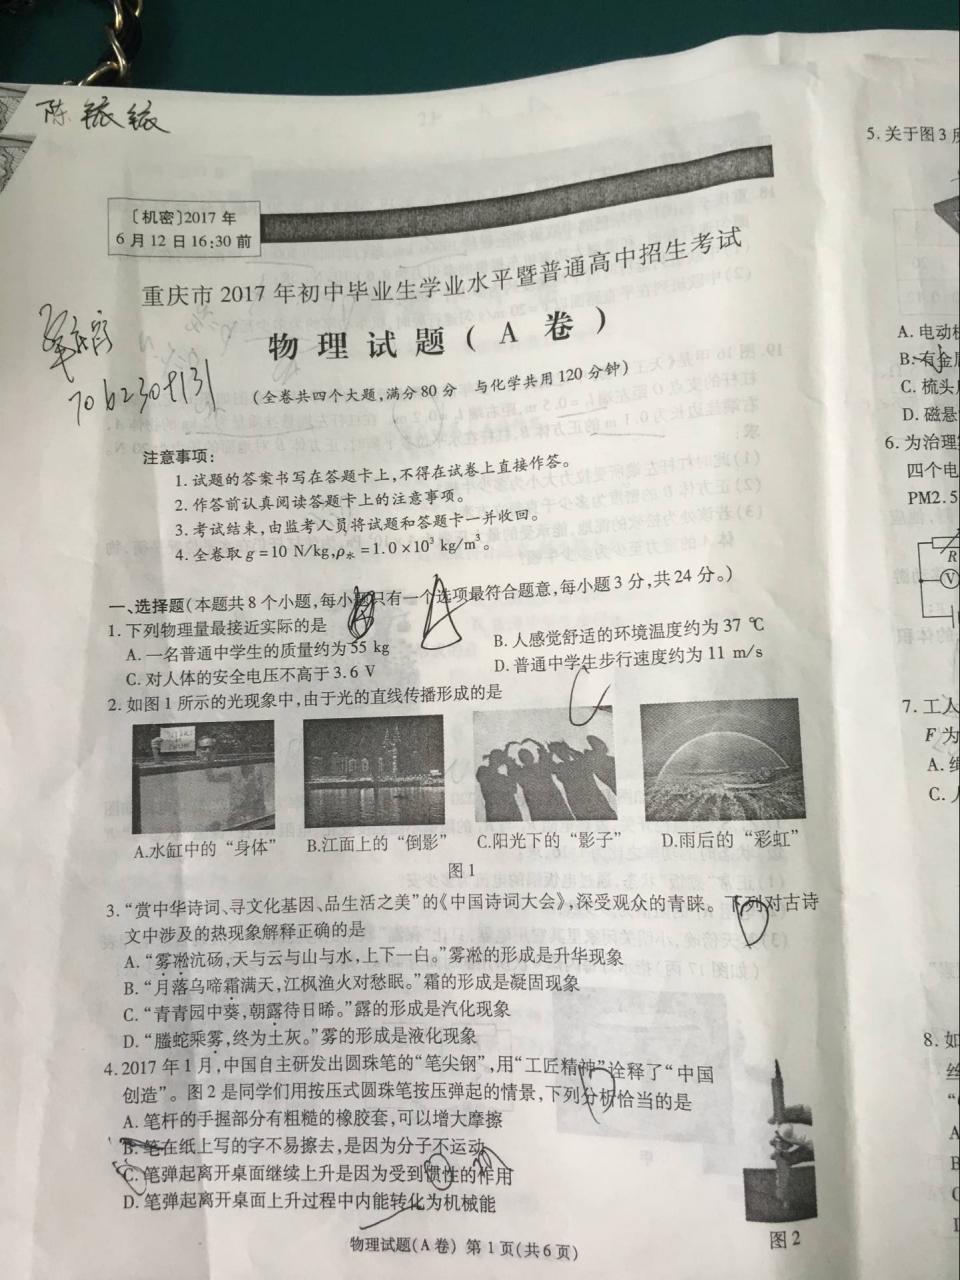 陈
〔机密〕2017年
6月12日16:30前
重庆市2017年初中毕业生学业水平暨普通高中招生考试
物理试题(A卷)
(全卷共四个大题,满分80分 与化学共用120分钟)
注意事项:
1.试题的答案书写在答题卡上,不得在试卷上直接作答。
2.作答前认真阅读答题卡上的注意事项。
3.考试结束,由监考人员将试题和答题卡一并收回。
4.全卷取g=10 N/kg,ρ水=1.0×10³ kg/m³。
一、选择题(本题共8个小题,每小题只有一个选项最符合题意,每小题3分,共24分。)
1.下列物理量最接近实际的是 A
A.一名普通中学生的质量约为55 kg B.人感觉舒适的环境温度约为37 ℃
C.对人体的安全电压不高于3.6 V D.普通中学生步行速度约为11 m/s
2.如图1所示的光现象中,由于光的直线传播形成的是 C
A.水缸中的“身体” B.江面上的“倒影” C.阳光下的“影子” D.雨后的“彩虹”
图1
3.“赏中华诗词、寻文化基因、品生活之美”的《中国诗词大会》,深受观众的青睐。下列对古诗
文中涉及的热现象解释正确的是 D
A.“雾凇沆砀,天与云与山与水,上下一白。”雾凇的形成是升华现象
B.“月落乌啼霜满天,江枫渔火对愁眠。”霜的形成是凝固现象
C.“青青园中葵,朝露待日晞。”露的形成是汽化现象
D.“螣蛇乘雾,终为土灰。”雾的形成是液化现象
4.2017年1月,中国自主研发出圆珠笔的“笔尖钢”,用“工匠精神”诠释了“中国
创造”。图2是同学们用按压式圆珠笔按压弹起的情景,下列分析恰当的是
A.笔杆的手握部分有粗糙的橡胶套,可以增大摩擦
B.笔在纸上写的字不易擦去,是因为分子不运动
C.笔弹起离开桌面继续上升是因为受到惯性的作用
D.笔弹起离开桌面上升过程中内能转化为机械能
图2
物理试题(A卷) 第1页(共6页)
5.关于图3
A.电动
B.有金
C.梳头
D.磁悬
6.为治理
四个电
PM2.5
R
V
7.工人
F为
A.
C.
8.如
A
B
C